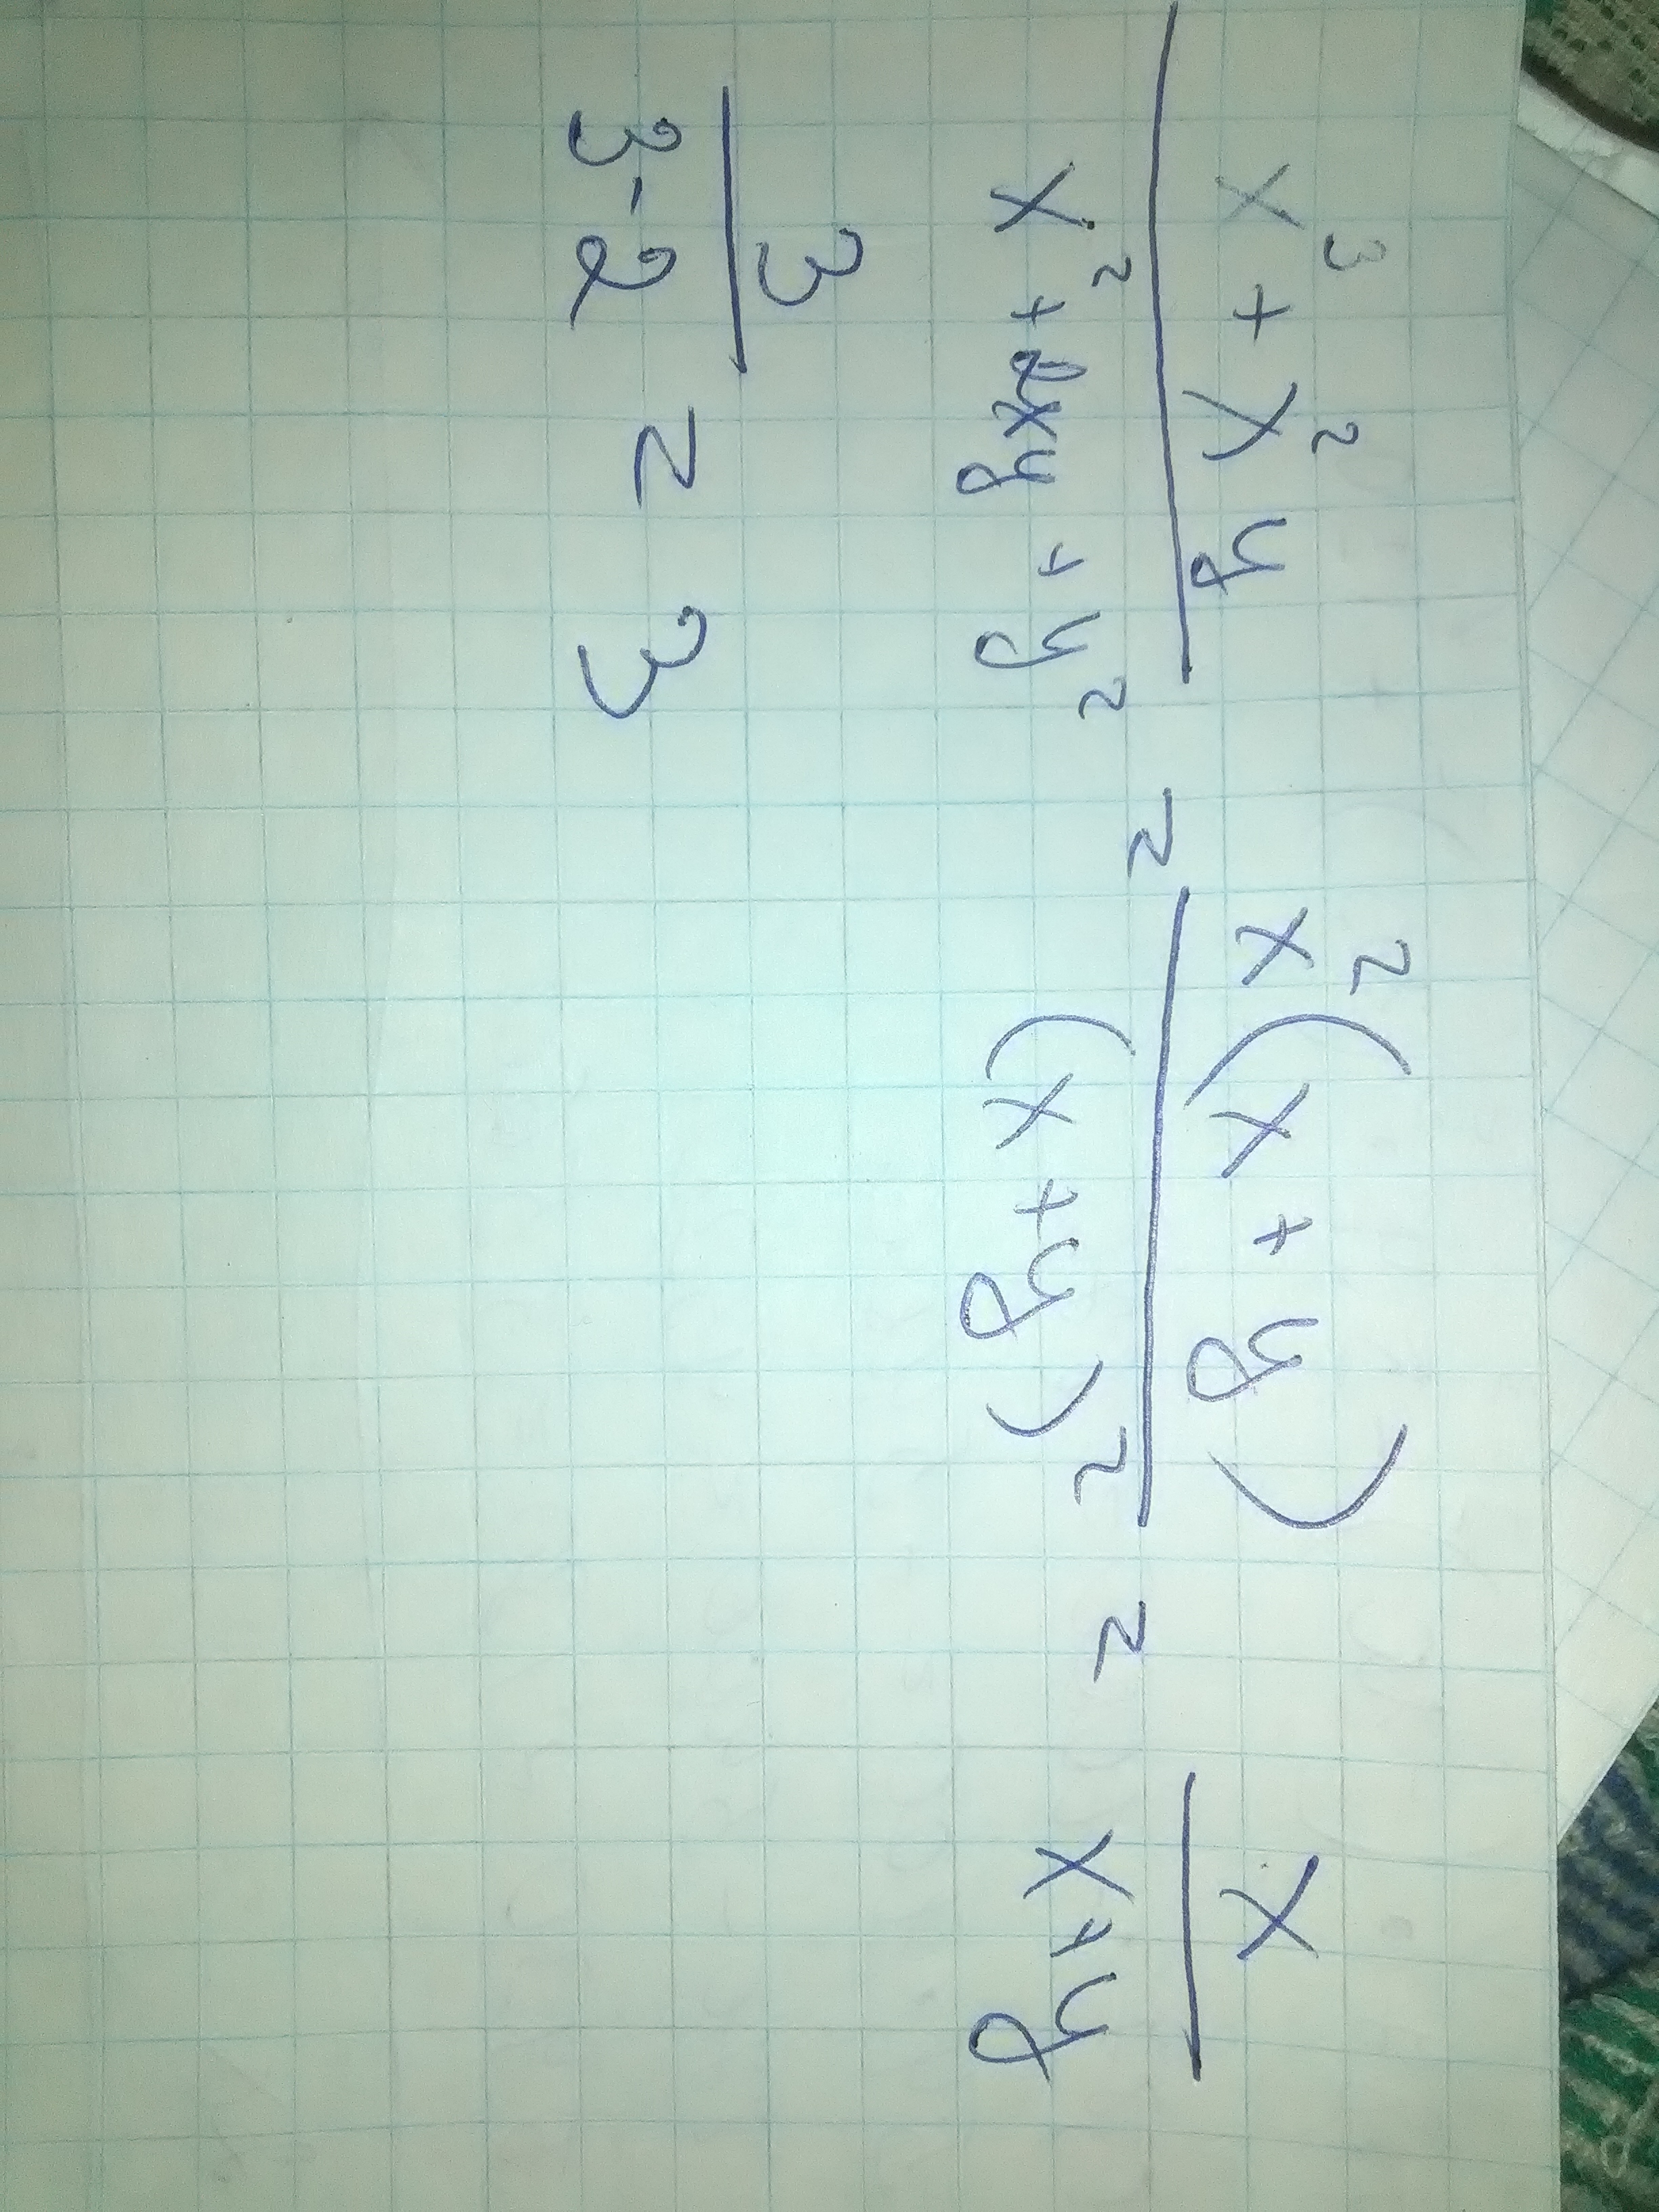 (x³ + x²y)/(x² + 2xy + y²) = x²(x + y)/(x + y)² = x/(x + y)
3/(3 - 2) = 3